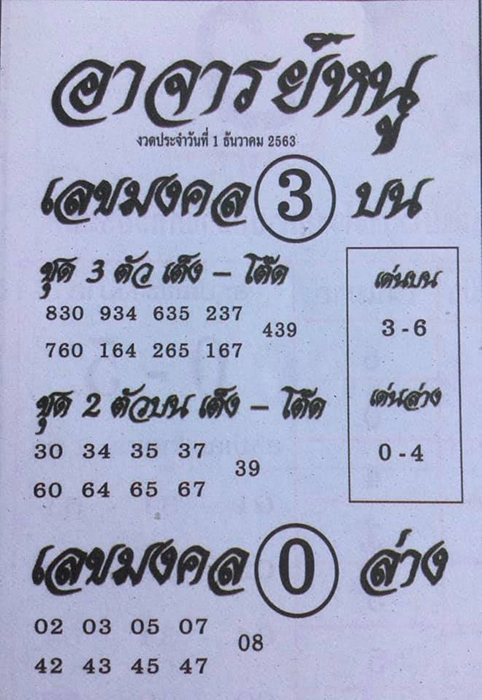 อาจารย์หนู
งวดประจำวันที่ 1 ธันวาคม 2563
เลขมงคล 3 บน
ชุด 3 ตัว เต็ง - โต๊ด
830 934 635 237
439
760 164 265 167
เด่นบน
3 - 6
ชุด 2 ตัวบน เต็ง - โต๊ด
30 34 35 37
39
60 64 65 67
เด่นล่าง
0 - 4
เลขมงคล 0 ล่าง
02 03 05 07
08
42 43 45 47